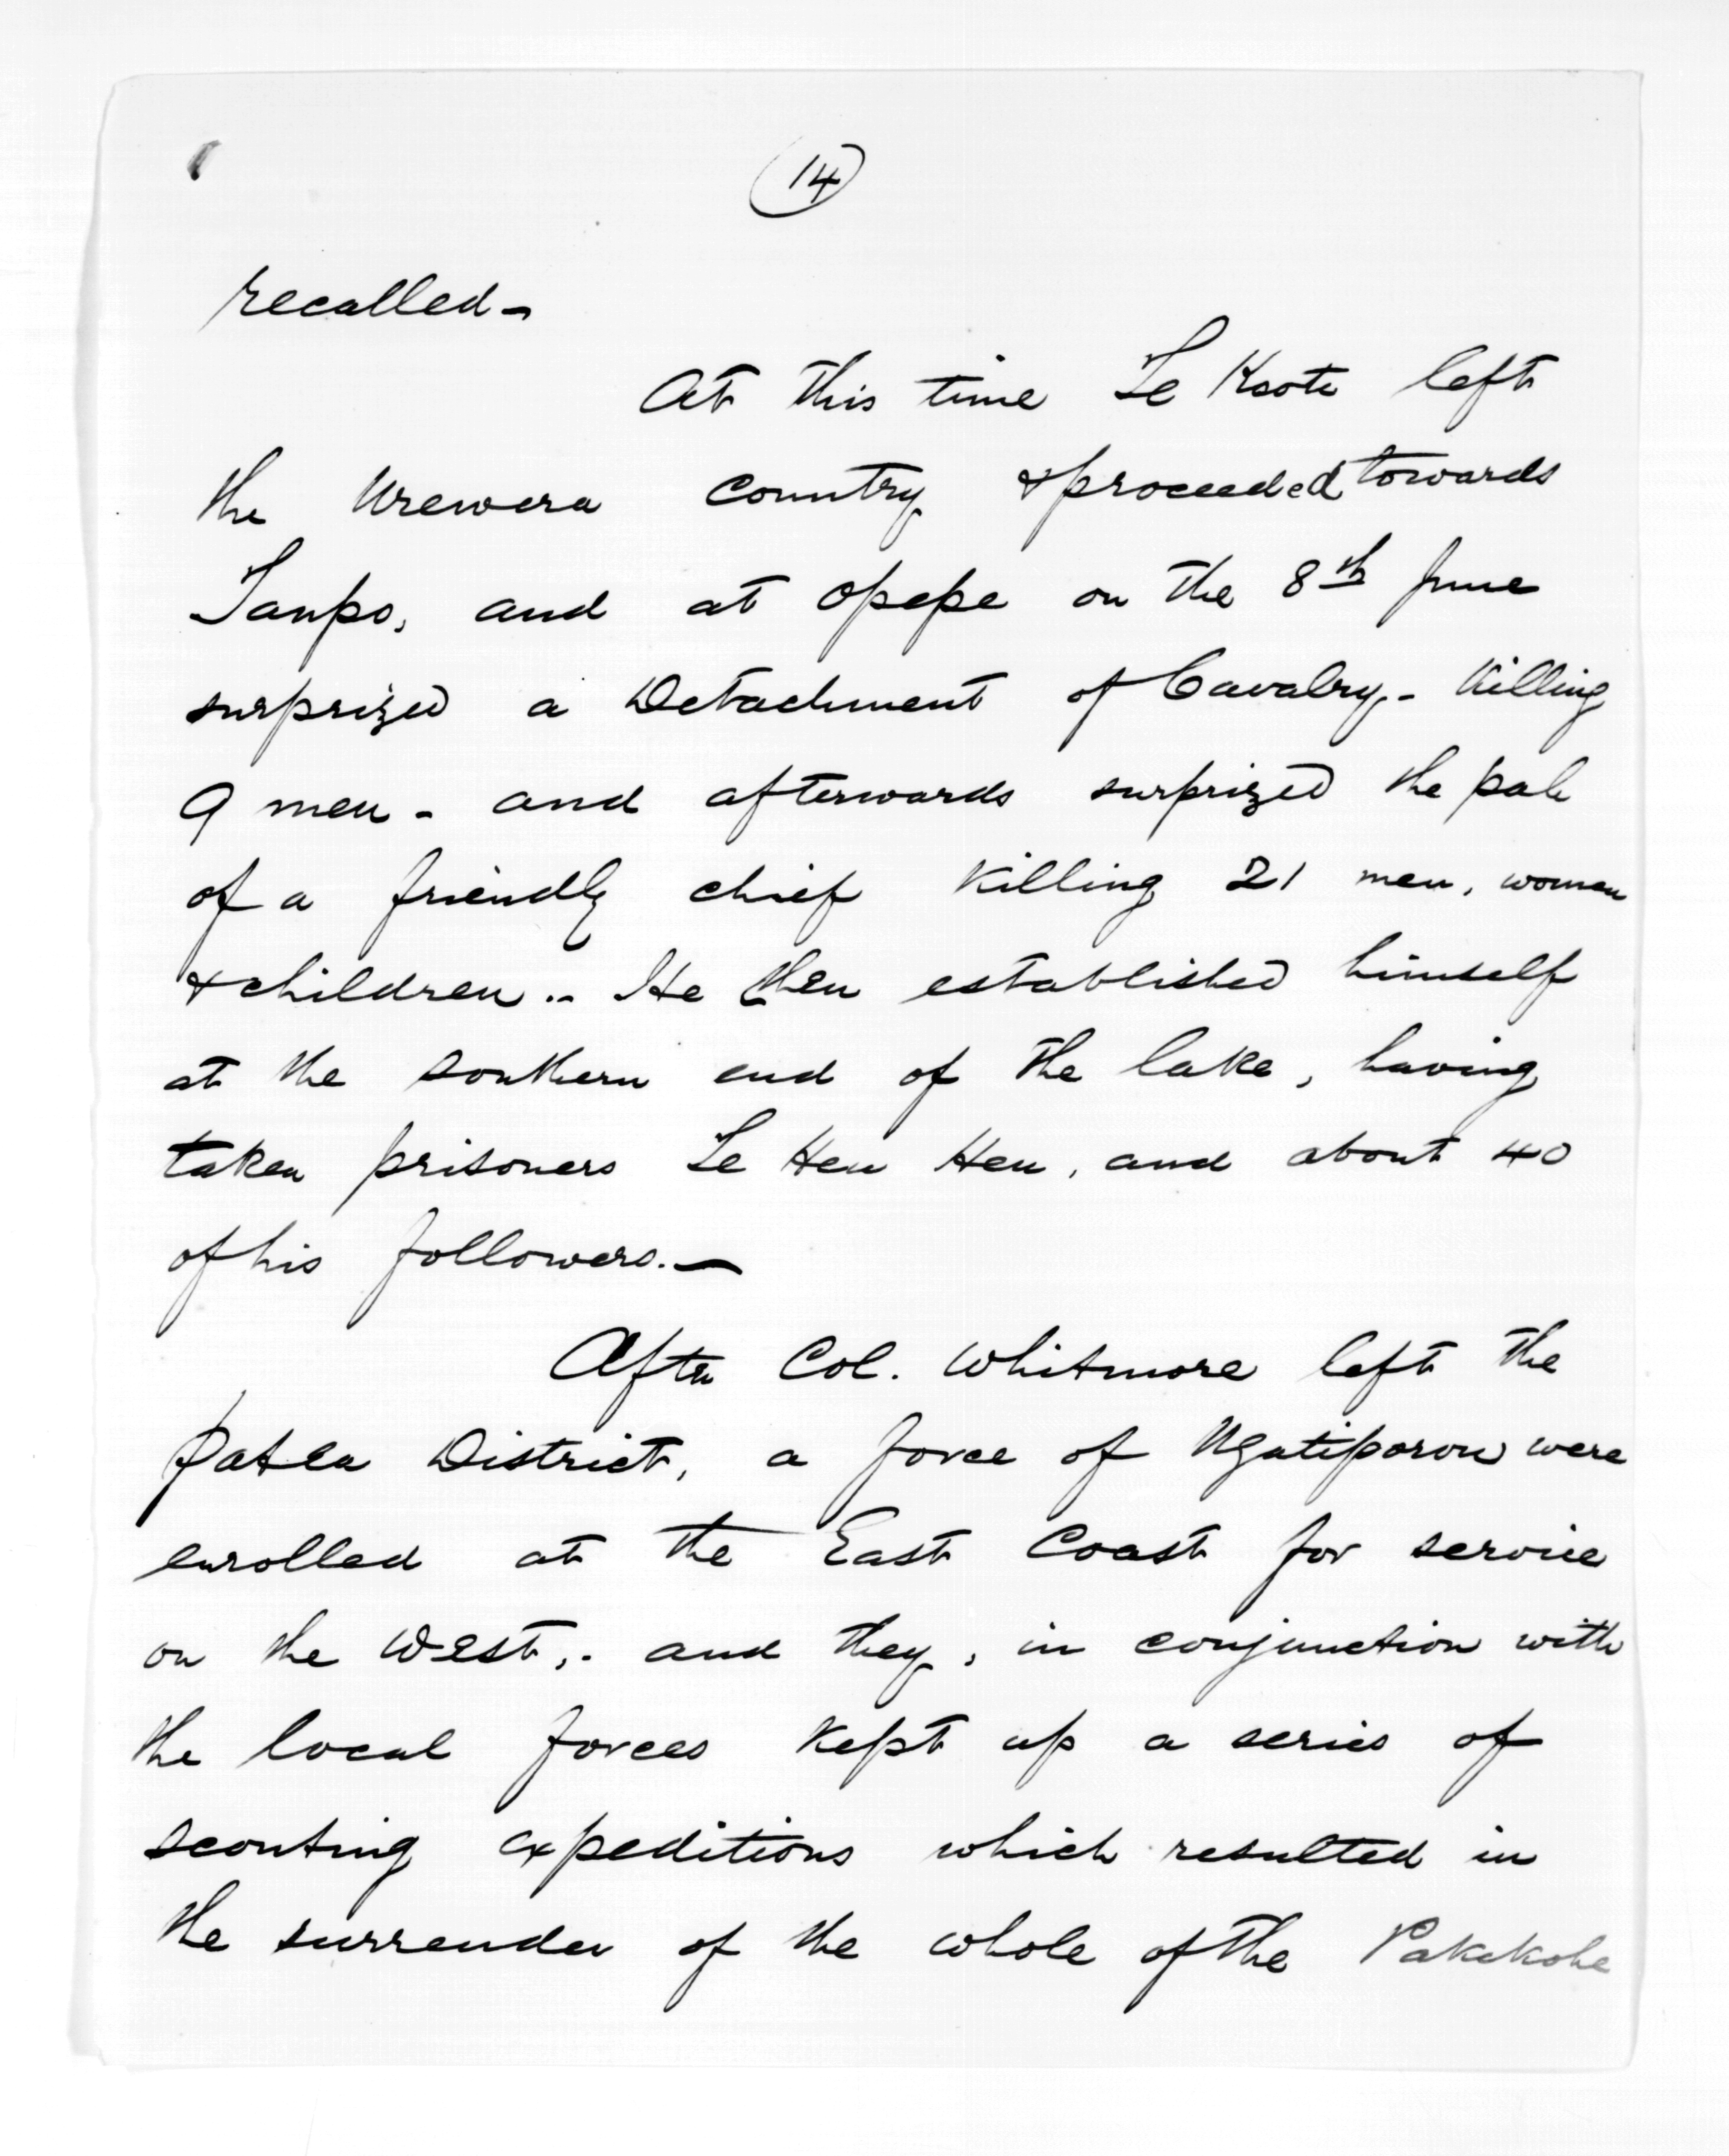 14
recalled -
At this time Te Kooti left
the Urewera Country & proceeded towards
Taupo, and at Opepe on the 8th June
surprized a Detachment of Cavalry - Killing
9 men - and afterwards surprized the pah
of a friendly chief Killing 21 men, women
& children .- He then established himself
at the Southern end of the lake, having
taken prisoners Te Heu Heu, and about 40
of his followers. -
After Col. Whitmore left the
Patea District, a force of Ngatiporou were
enrolled at the East Coast for service
on the West,. and they, in conjunction with
the local forces Kept up a series of
Scouting expeditions which resulted in
the surrender of the whole of the Pakakohe